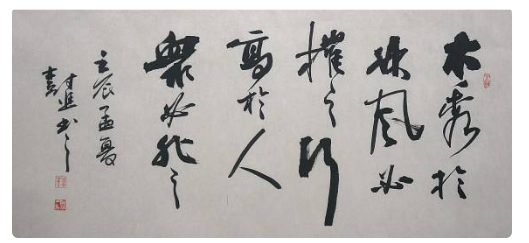 木秀於
林风必
摧之行
高於人
衆必非之
壬辰孟夏
书之